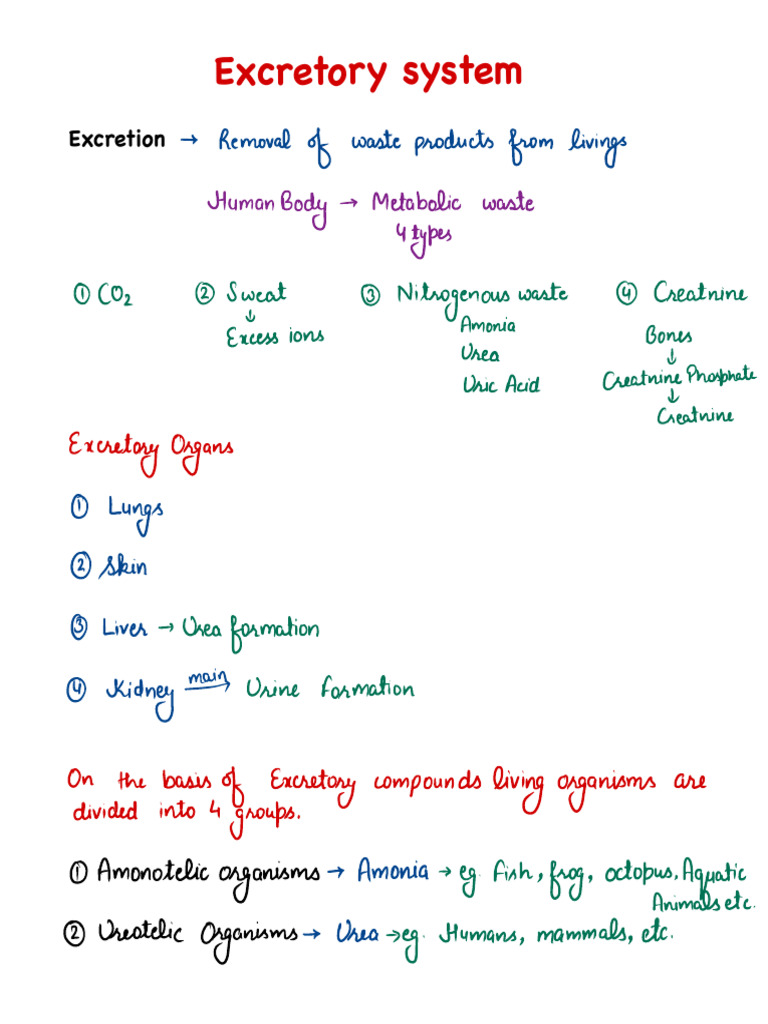 Excretory system
Excretion → Removal of waste products from livings
Human Body → Metabolic waste
4 types
① CO₂ ② Sweat ③ Nitrogenous waste ④ Creatnine
↓
Excess ions
Amonia
Urea
Uric Acid
Bones
↓
Creatnine Phosphate
↓
Creatnine
Excretory Organs
① Lungs
② Skin
③ Liver → Urea formation
④ Kidney main→ Urine Formation
On the basis of Excretory compounds living organisms are
divided into 4 groups.
① Amonotelic organisms → Amonia → eg. Fish, frog, octopus, Aquatic
Animals etc.
② Ureatelic Organisms → Urea → eg. Humans, mammals, etc.